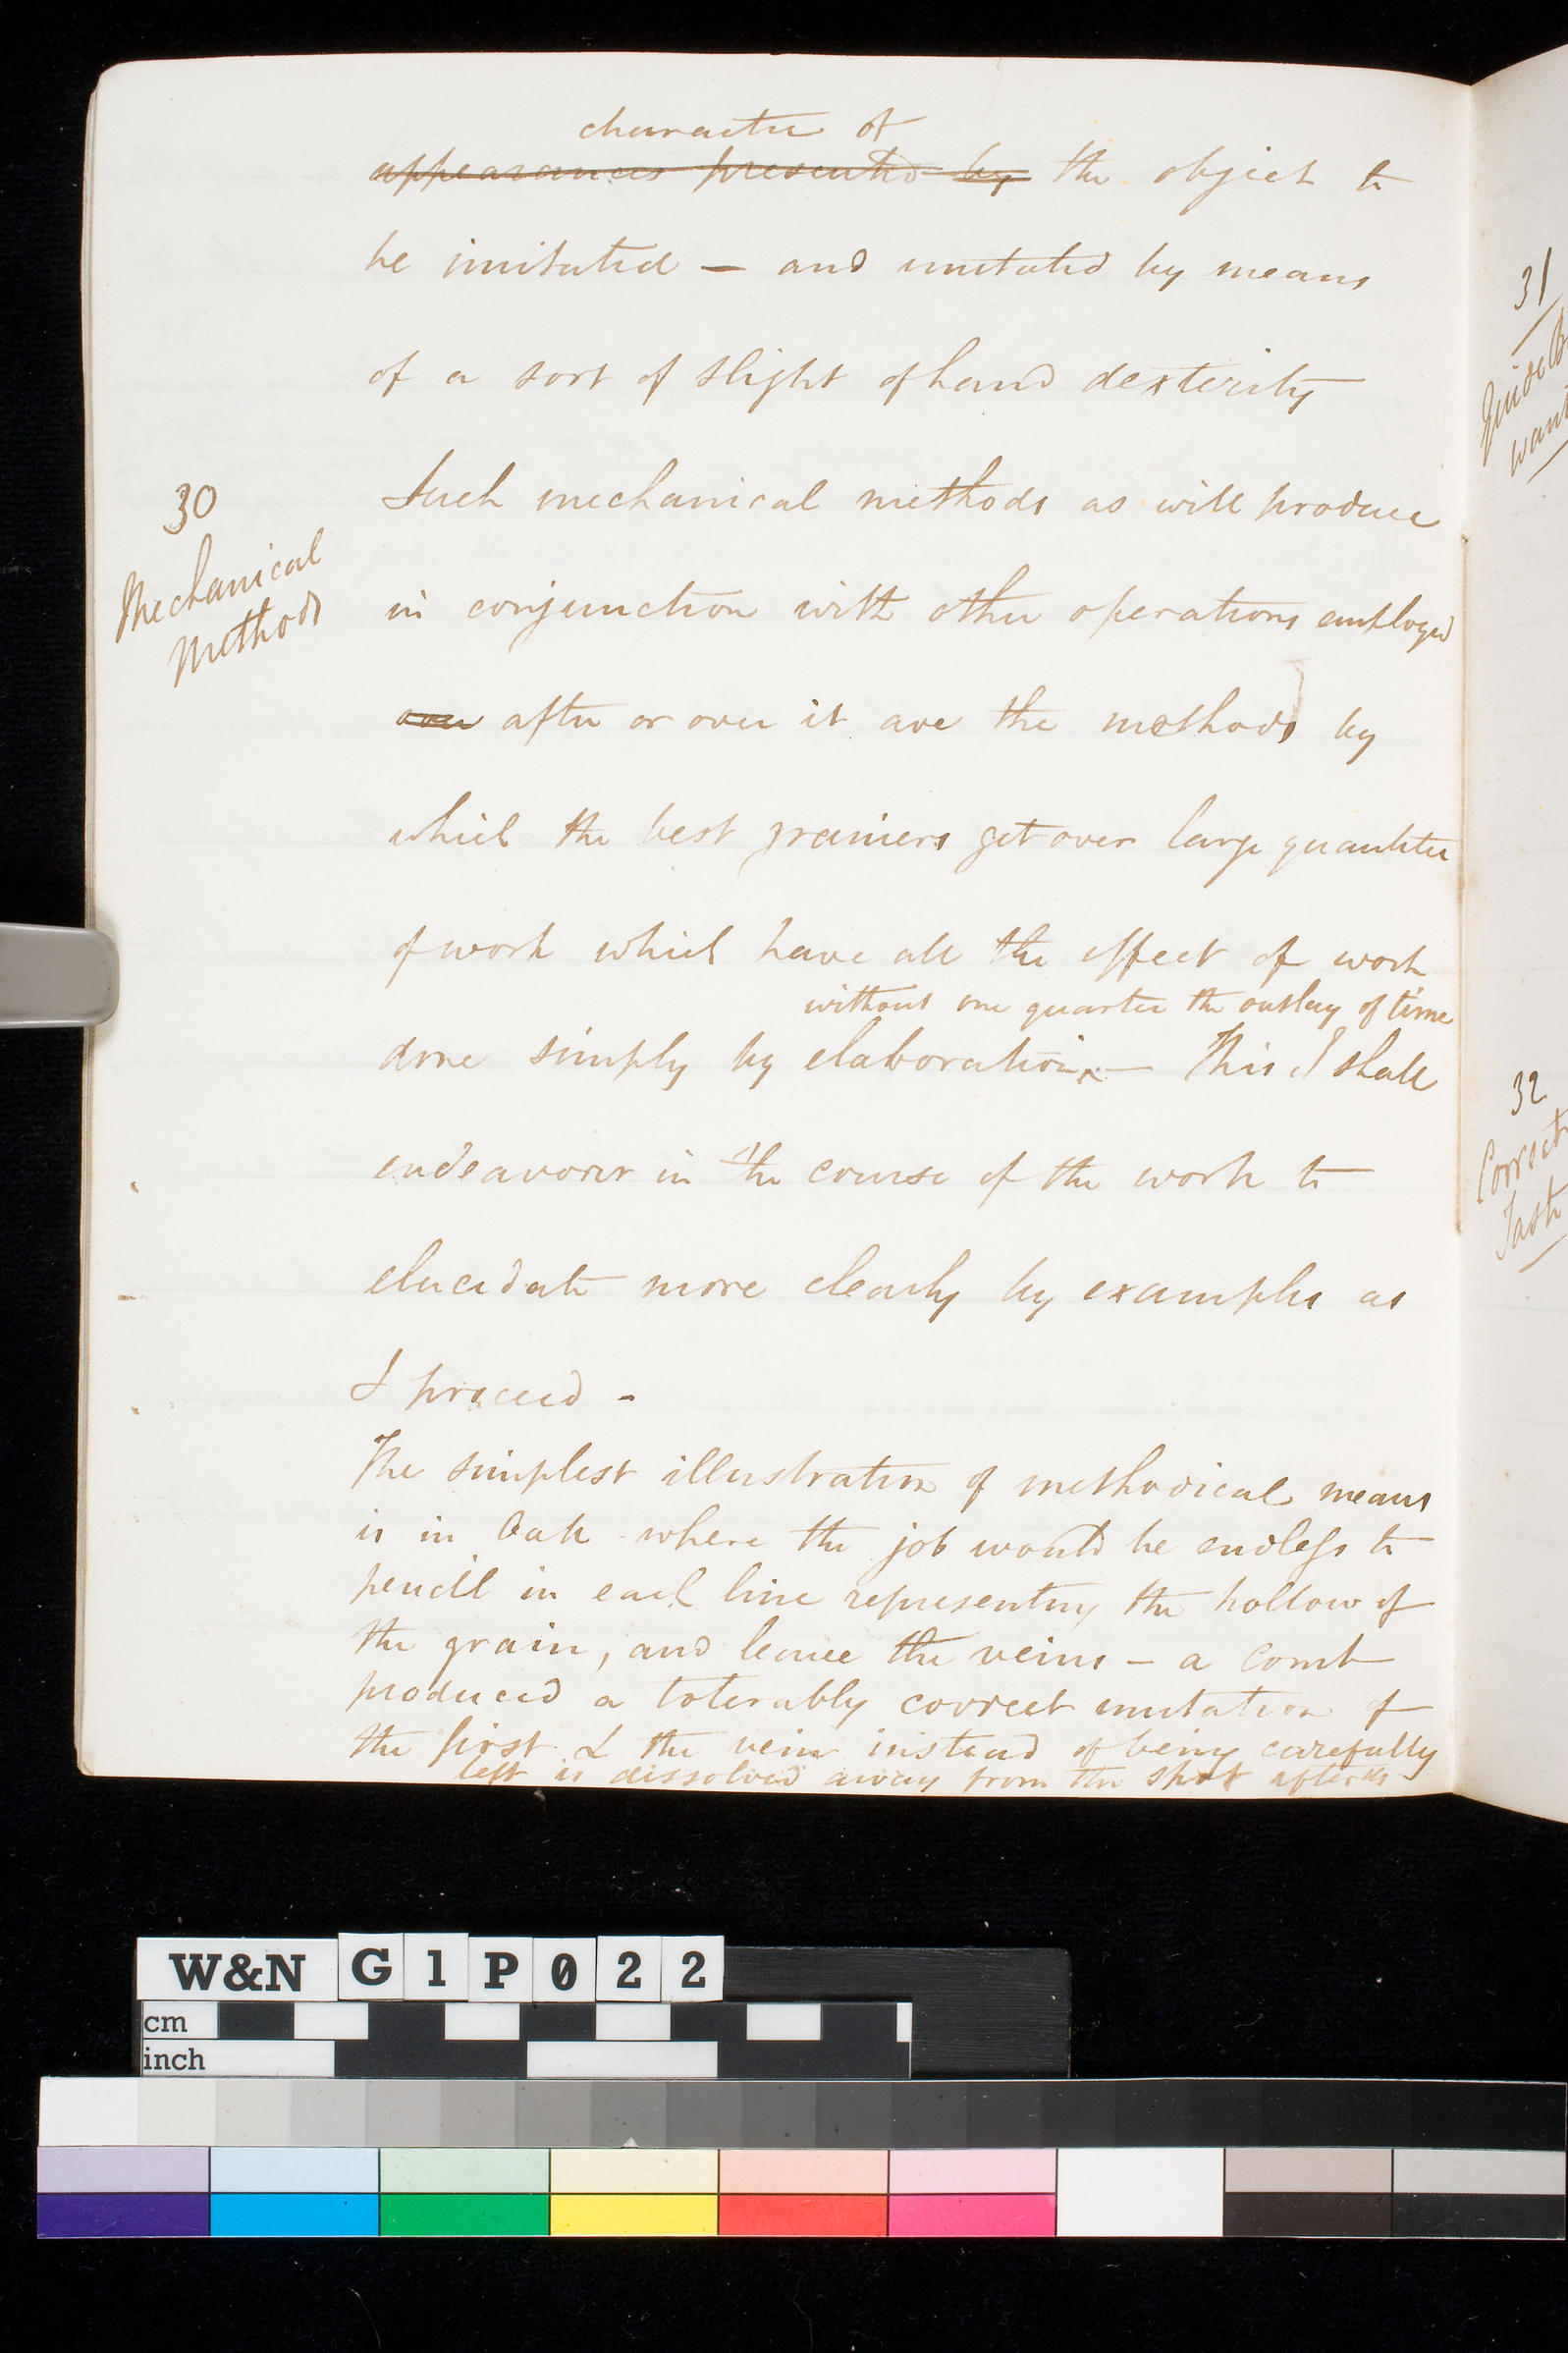 character of
appearances presented by the object to
be imitated – and imitated by means
of a sort of slight of hand dexterity
30
Mechanical
Methods
Such mechanical methods as will produce
in conjunction with other operations employed
over after or over it are the methods by
which the best grainers get over large quantities
of work which have all the effect of work
without one quarter the outlay of time
done simply by elaboration – This I shall
endeavour in the course of the work to
elucidate more clearly by examples as
I proceed -
The simplest illustration of methodical means
is in Oak where the job would be endless to
pencil in each line representing the hollow of
the grain, and leave the veins – a comb
produced a tolerably correct imitation of
the first & the vein instead of being carefully
left is dissolved away from the spot after
31
32
Correct
W&N G1P022
cm
inch